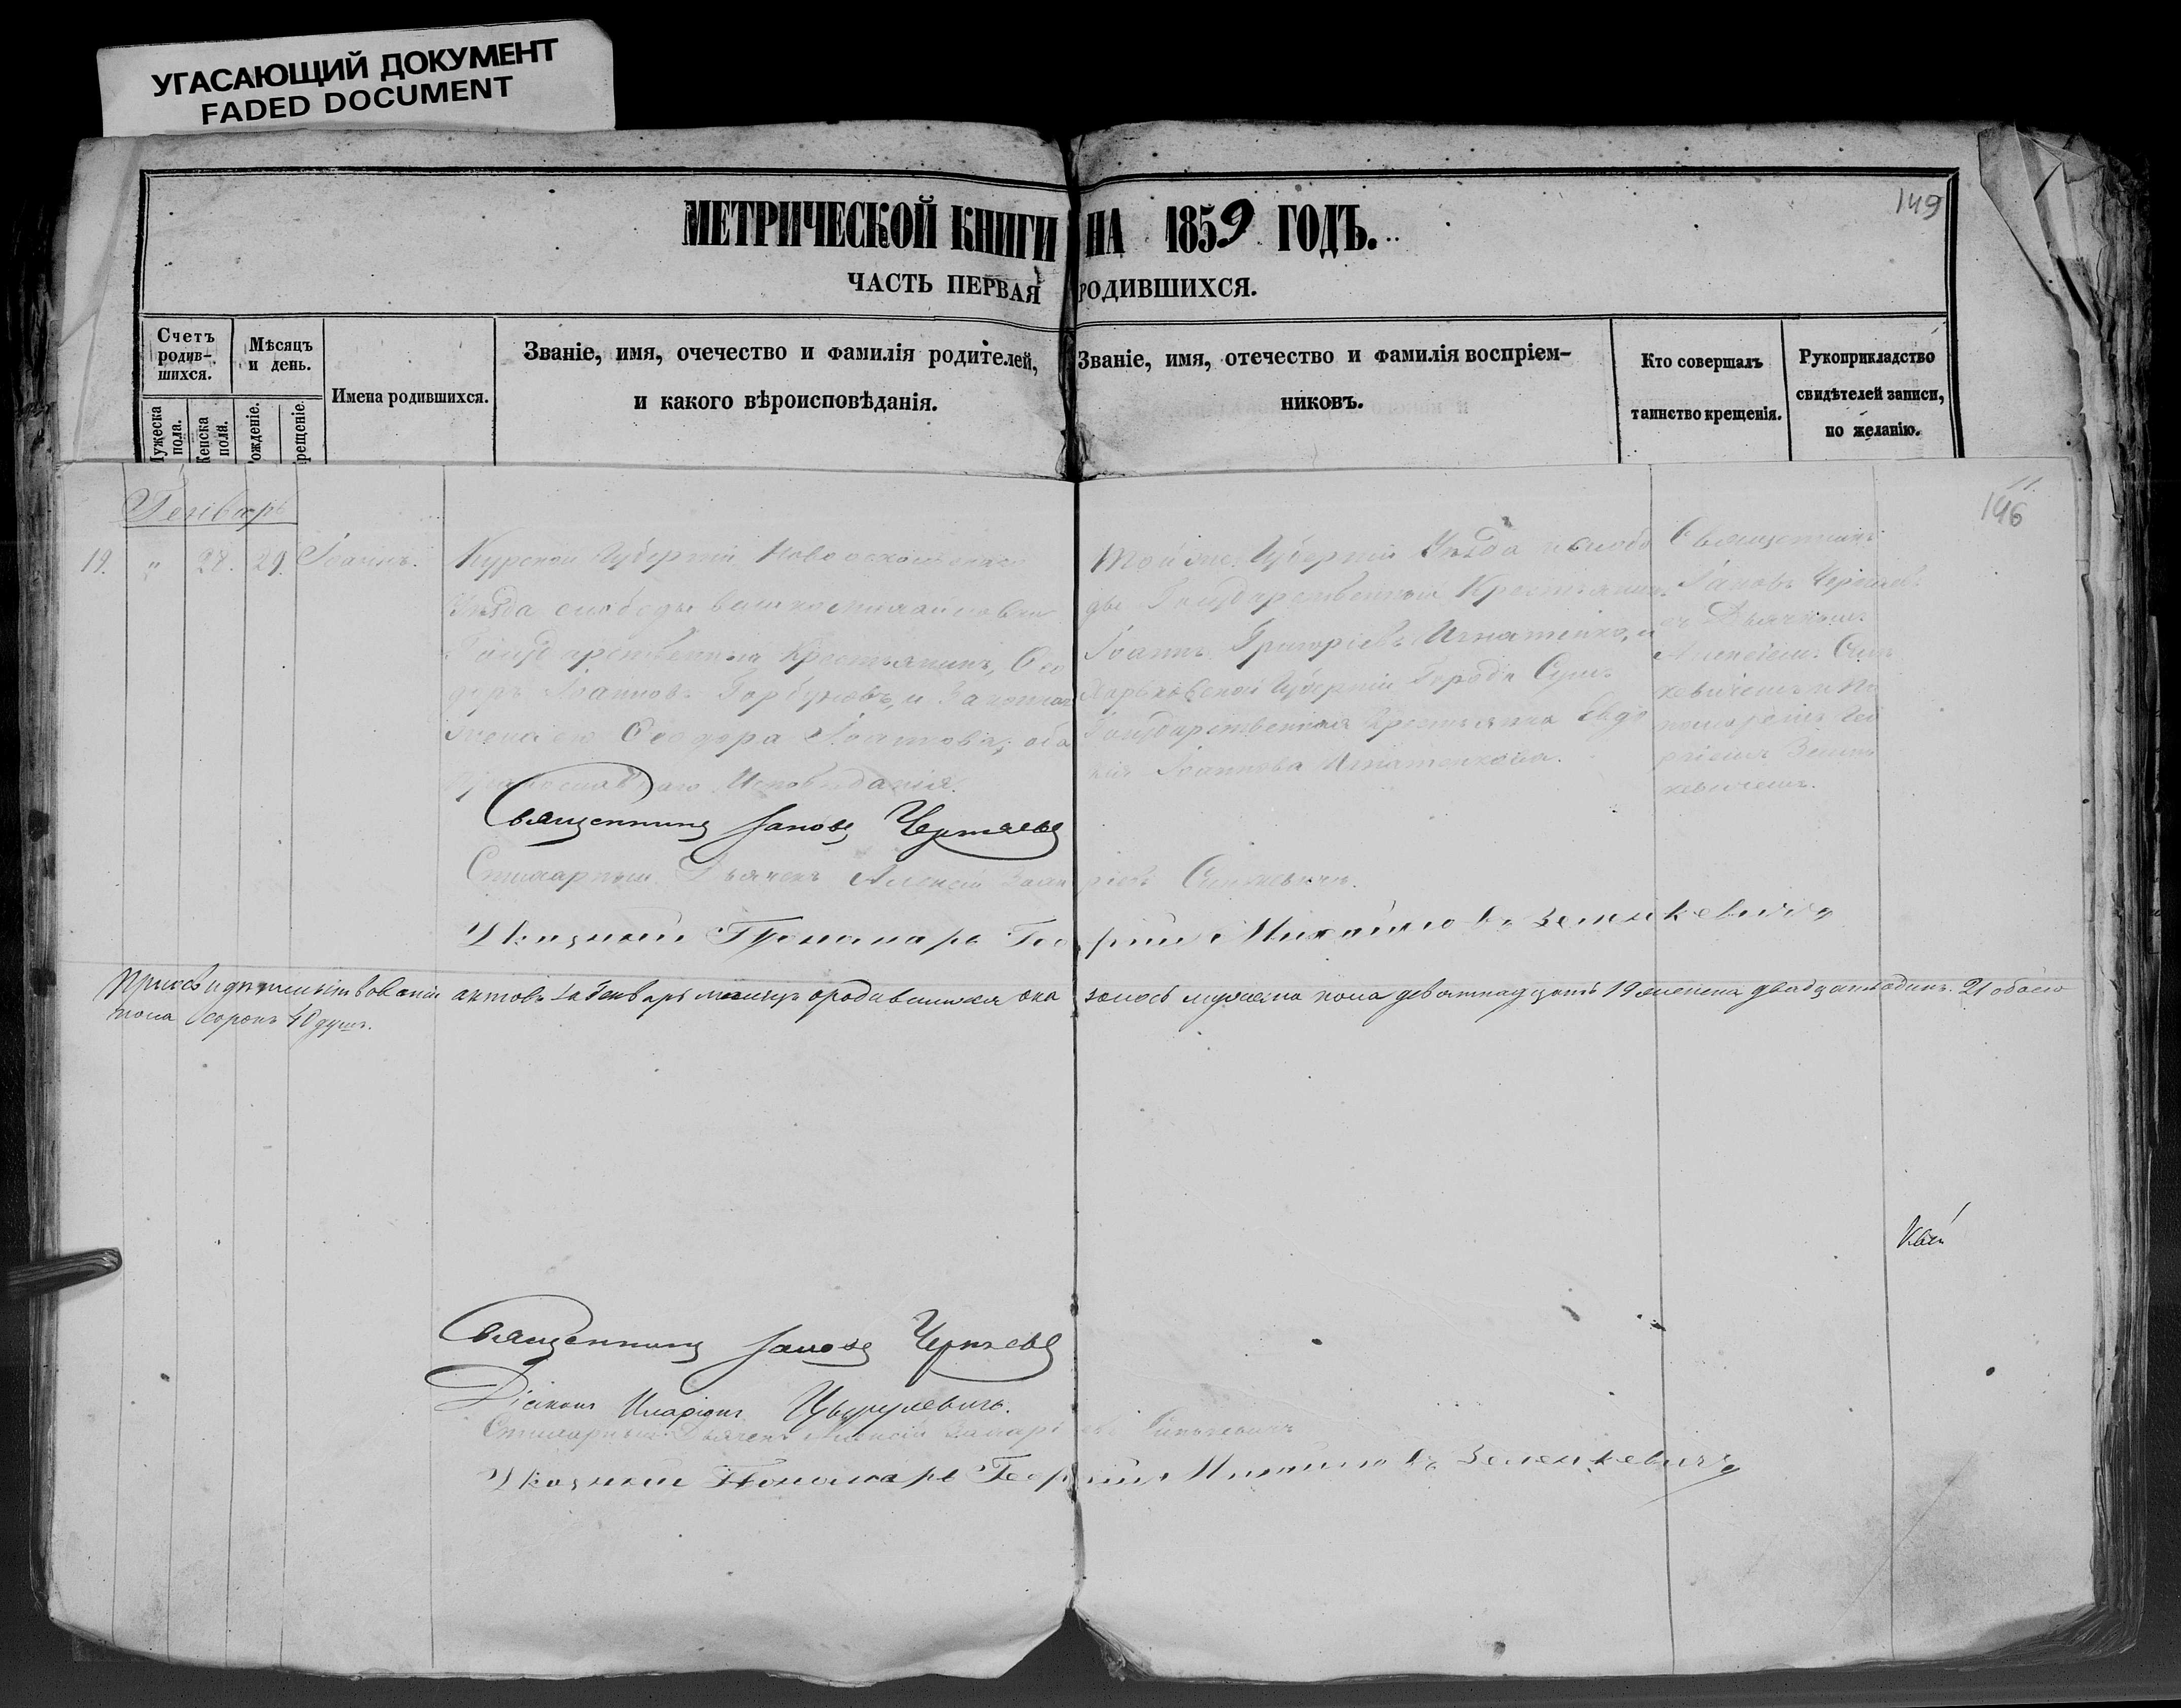 УГАСАЮЩИЙ ДОКУМЕНТ
FADED DOCUMENT
149
МЕТРИЧЕСКОЙ КНИГИ НА 1859 ГОДЪ.
ЧАСТЬ ПЕРВАЯ РОДИВШИХСЯ.
Счетъ родив-шихся.
Мужеска пола.
Женска пола.
Мѣсяцъ и день.
Рожденіе.
Крещеніе.
Имена родившихся.
Званіе, имя, очечество и фамилія родителей,
и какого вѣроисповѣданія.
Званіе, имя, отечество и фамилія воспріем-
никовъ.
Кто совершалъ
таинство крещенія.
Рукоприкладство
свидѣтелей записи,
по желанію.
11.
146
Генварь
19. " 28. 29. Іоаннъ.
Курской Губерніи Новооскольскаго
Уѣзда слободы Великомихайловки
Государственный Крестьянинъ, Ѳео
доръ Іоанновъ Горбуновъ, и Законная
жена его Ѳеодора Іоаннова; оба
православнаго Исповѣданія.
Тойже Губерніи Уѣзда и слобо
ды Государственный Крестьянинъ
Іоаннъ Григоріевъ Игнатенко, и
Харьковской Губерніи Города Сумъ
Государственная Крестьянка Евдо
кія Іоаннова Игнатенкова.
Священникъ
Іаковъ Черняевъ
съ Дьячкомъ
Алексіемъ Синь
кевичемъ и По
номаремъ Гео
ргіемъ Зеньк
кевичемъ.
Священникъ Іаковъ Черняевъ
Стихарный Дьячекъ Алексій Синькевичъ.
Указной Пономарь Георгій Михайловъ Зеленкевичъ
При свидѣтельствованіи актовъ за Генварь мѣсяцъ о родившихся ока залось мужеска пола девятнадцать 19 женска двадцать одинъ. 21 обоего
пола сорокъ 40 душъ.
Священникъ Іаковъ Черняевъ
Діаконъ Иларіонъ
Стихарный Дьячекъ Алексій Синькевичъ
Указной Пономарь Георгій Михайловъ Зеленкевичъ